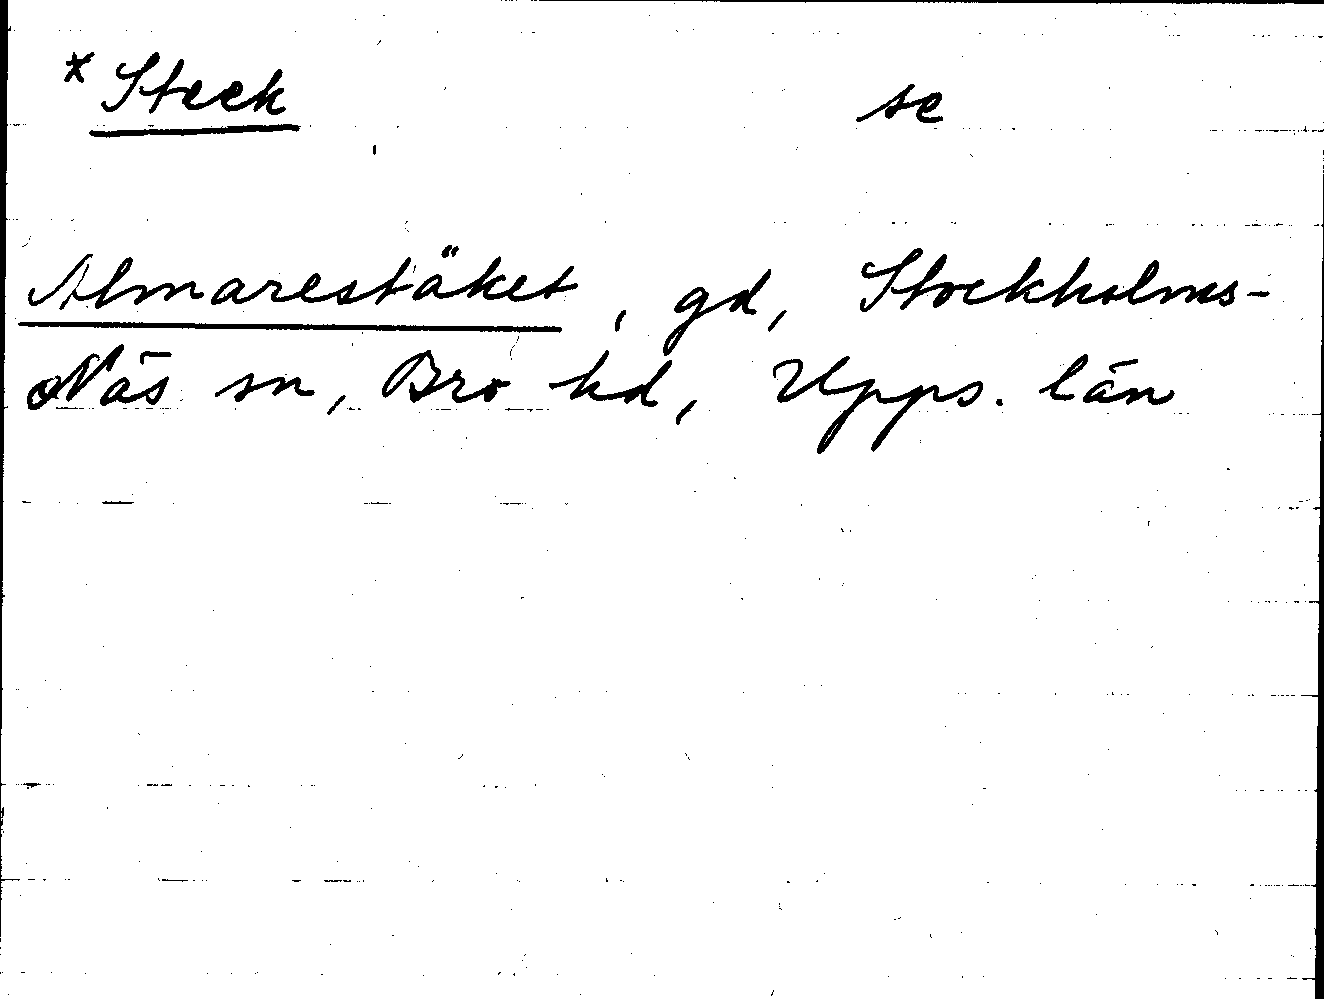 *Steck se
Almarestäket, gd, Stockholms-
Näs sn, Bro hd, Upps. län